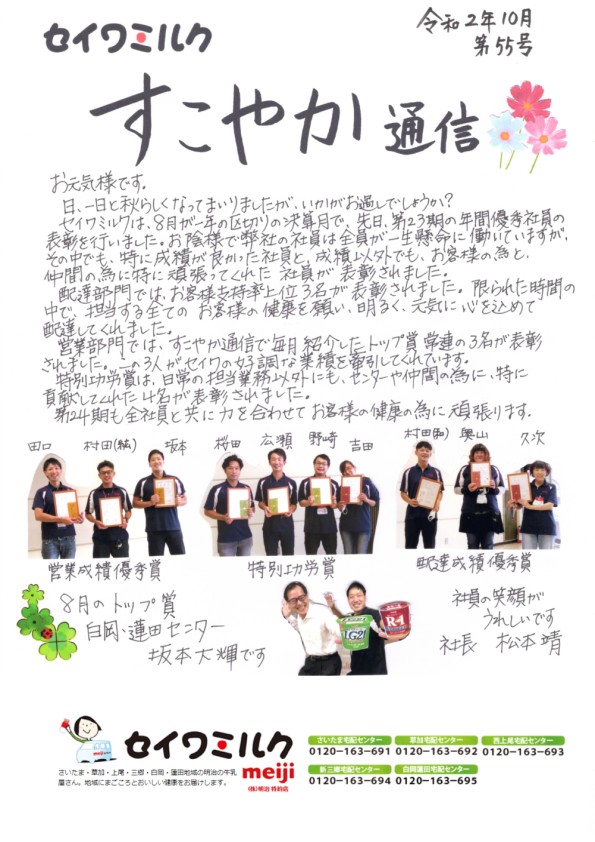 セイワミルク
令和2年10月
第55号
すこやか通信
お元気様です。
日、一日と秋らしくなってまいりましたが、いかがお過しでしょうか?
セイワミルクは、8月が一年の区切りの決算月で、先日、第23期の年間優秀社員の
表彰を行いました。お陰様で弊社の社員は全員が一生懸命に働いていますが、
その中でも、特に成績が良かった社員と、成績以外でも、お客様の為と、
仲間の為に特に頑張ってくれた社員が表彰されました。
配達部門では、お客様支持率上位3名が表彰されました。限られた時間の
中で、担当する全てのお客様の健康を願い、明るく、元気に心を込めて
配達してくれました。
営業部門では、すこやか通信で毎月紹介したトップ賞常連の3名が表彰
されました。この3人がセイワの好調な業績を牽引してくれています。
特別功労賞は、日常の担当業務以外にも、センターや仲間の為に、特に
貢献してくれた4名が表彰されました。
第24期も全社員と共に力を合わせてお客様の健康の為に頑張ります。
田口 村田(紘) 坂本 桜田 広瀬 野崎 吉田 村田(和) 奥山 久次
営業成績優秀賞 特別功労賞 配達成績優秀賞
8月のトップ賞
白岡・蓮田センター
坂本大輝です
LG21
R-1
社員の笑顔が
うれしいです
社長 松本靖
セイワミルク
さいたま・草加・上尾・三郷・白岡・蓮田地域の明治の牛乳
屋さん。地域にまごころとおいしい健康をお届けします。
meiji
(株)明治 特約店
さいたま宅配センター
0120-163-691
草加宅配センター
0120-163-692
西上尾宅配センター
0120-163-693
新三郷宅配センター
0120-163-694
白岡蓮田宅配センター
0120-163-695